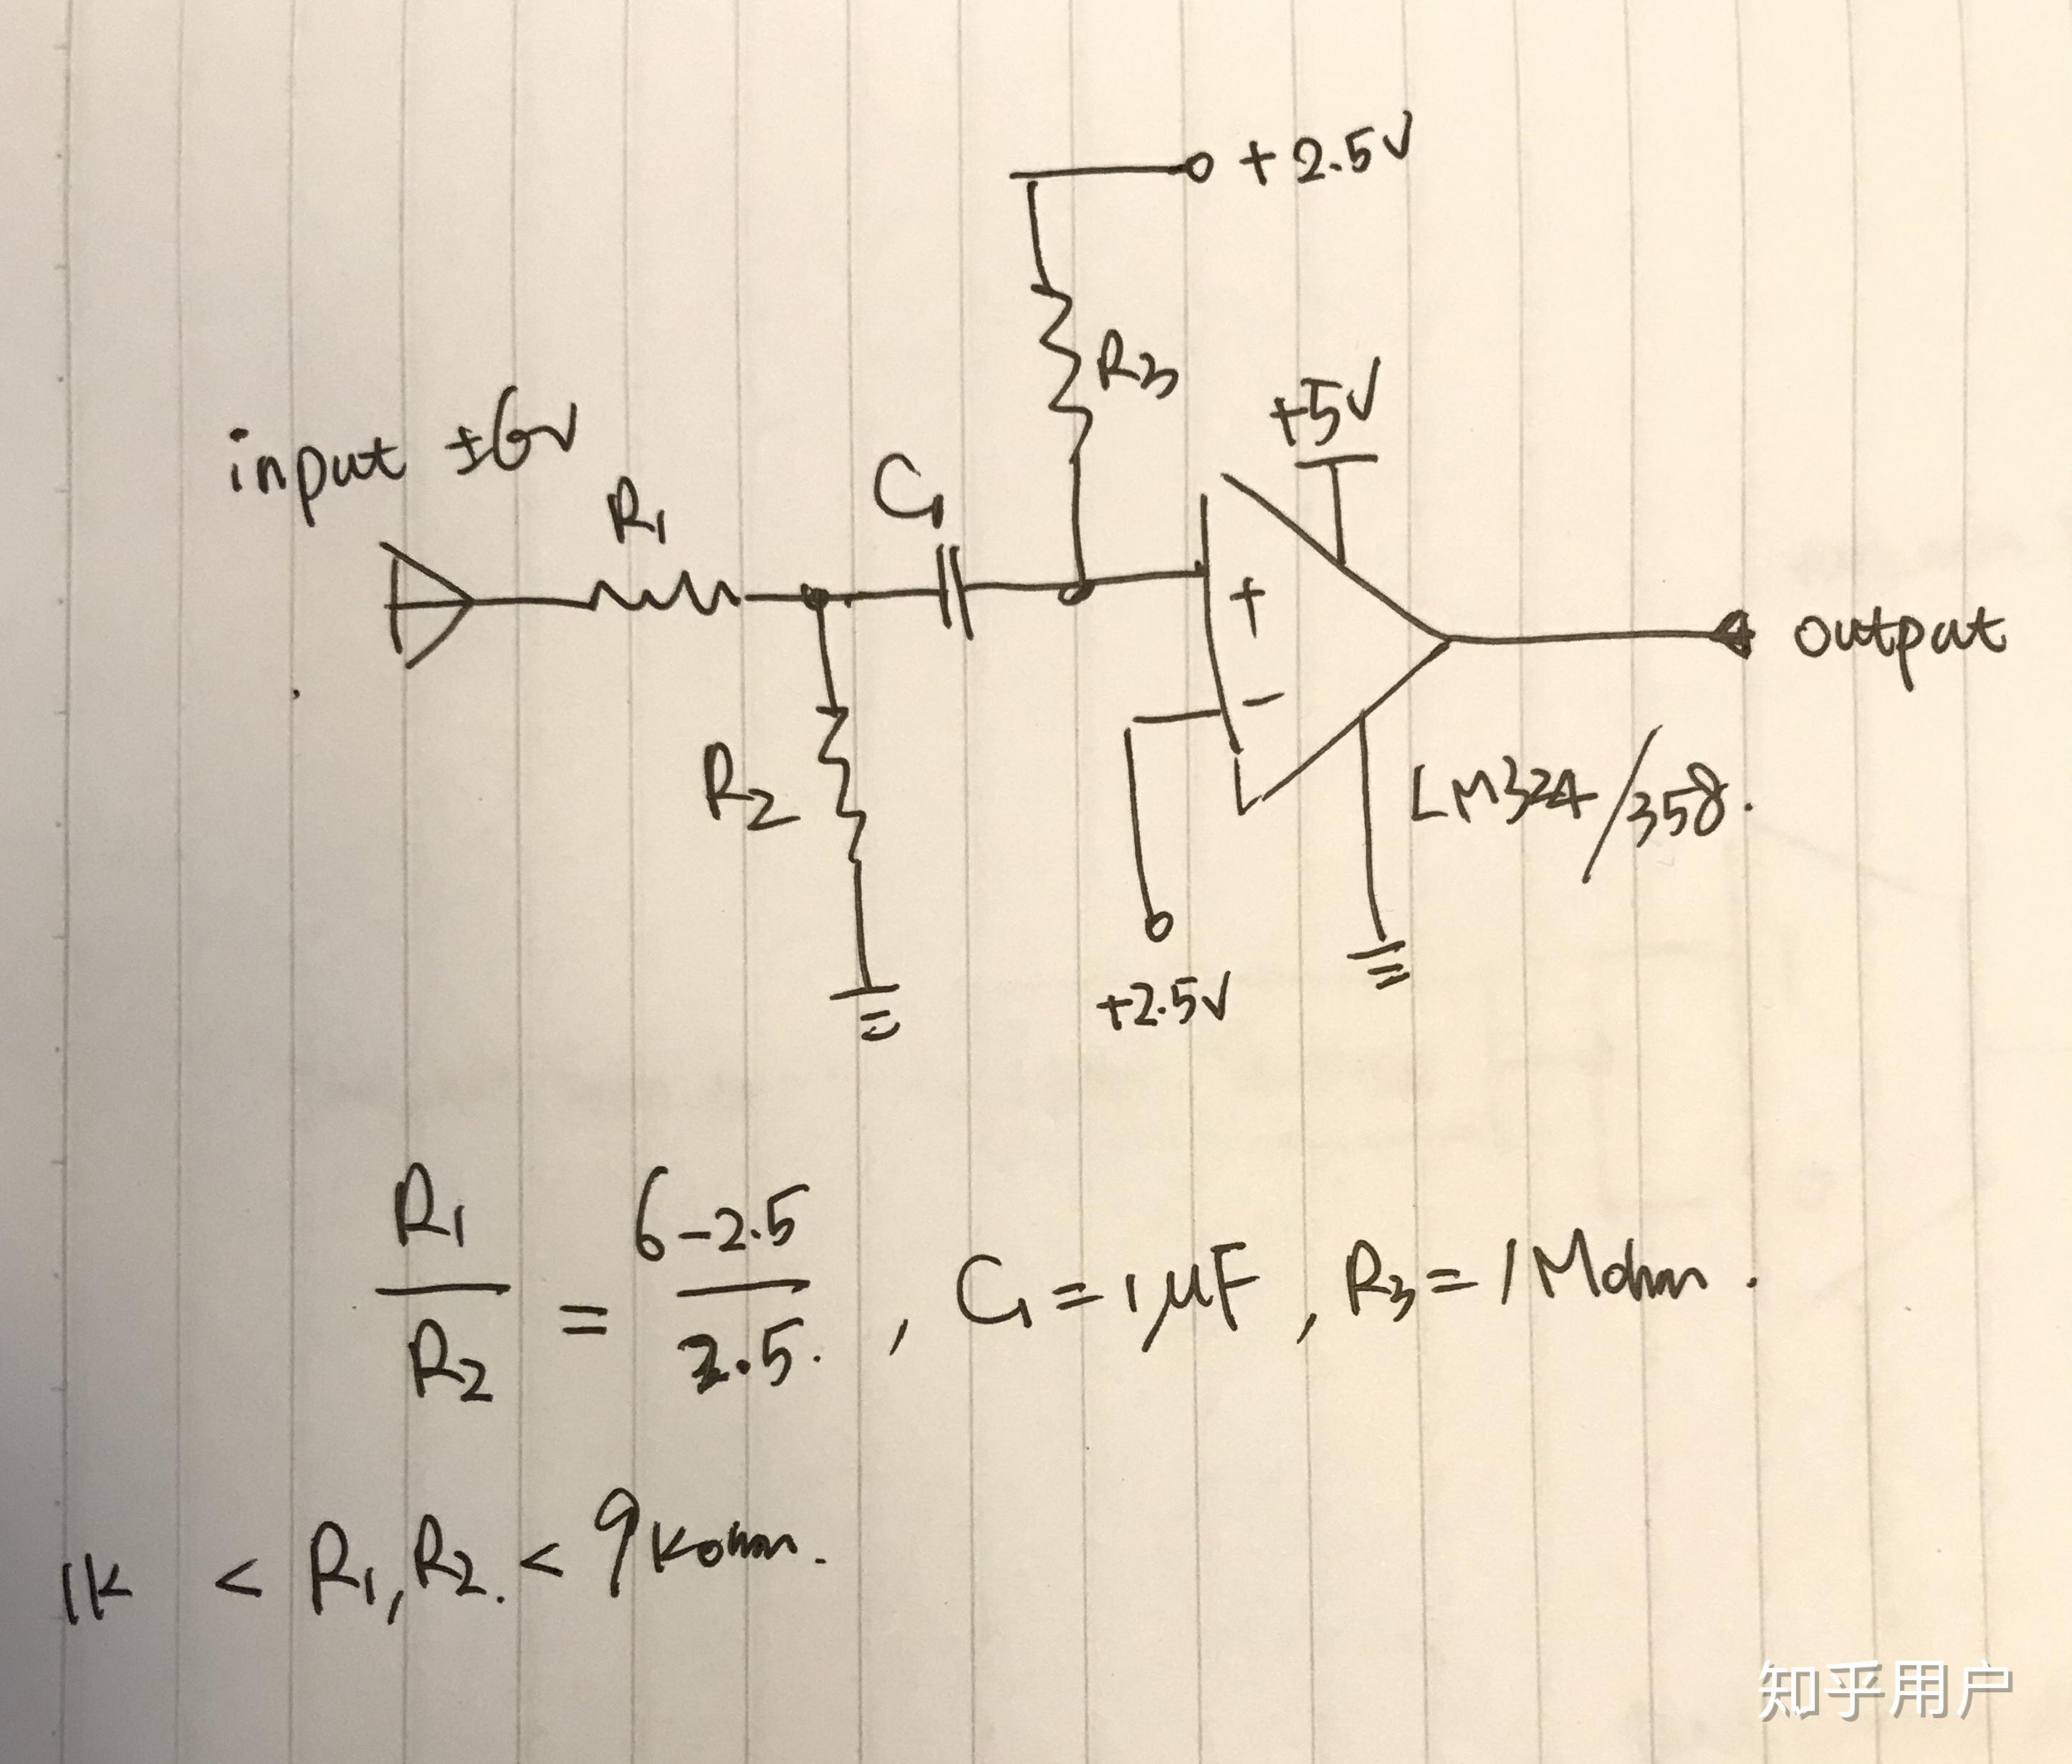 +2.5V
R3
+5V
input ±6V
R1
C1
+
output
R2
−
LM324/358.
+2.5V
R1/R2 = 6-2.5/2.5. , C1=1µF, R3=1Mohm.
1K < R1,R2. < 9Kohm.
知乎用户